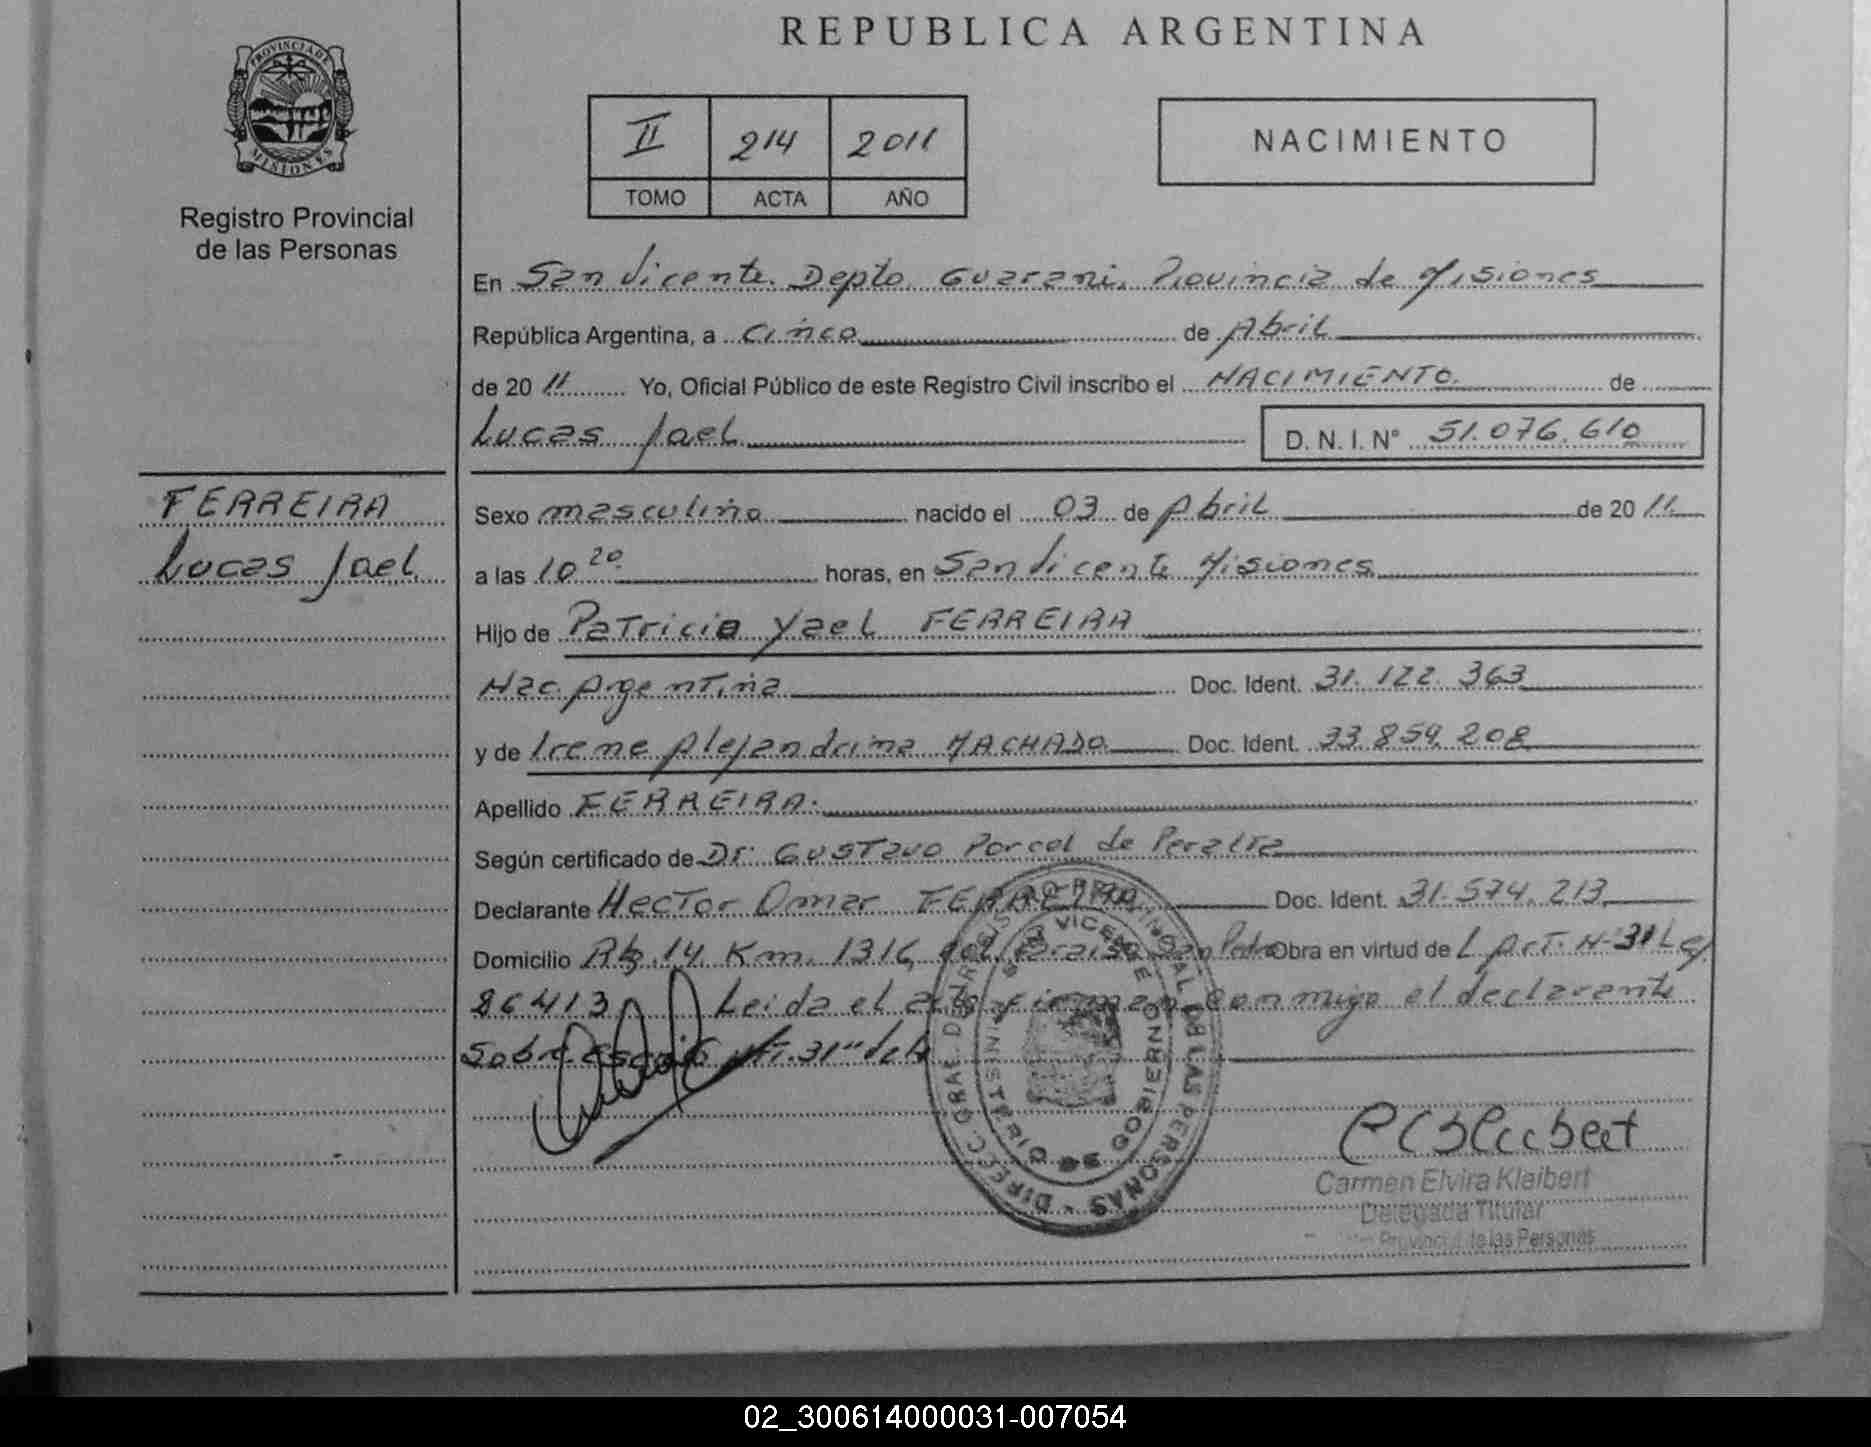 REPUBLICA ARGENTINA
PROVINCIA DE
MISIONES
Registro Provincial
de las Personas
II 214 2011
TOMO ACTA AÑO
NACIMIENTO
En San Vicente. Depto. Guarani. Provincia de Misiones
República Argentina, a Cinco de Abril
de 2011 Yo, Oficial Público de este Registro Civil inscribo el NACIMIENTO. de
Lucas Jael D. N. I. N° 51.076.610
FERREIRA
Lucas Jael
Sexo masculino nacido el 03 de Abril de 2011
a las 10 20 horas, en San Vicente Misiones
Hijo de Patricio Yael FERREIRA
Nac. Argentina Doc. Ident. 31.122.363
y de Irene Alejandrina MACHADO Doc. Ident. 33.859.208
Apellido FERREIRA.
Según certificado de Dr. Gustavo Porcel de Peralta
Declarante Hector Omar FERREIRA Doc. Ident. 31.574.213
Domicilio Km. 1316 San Pedro Obra en virtud de L Art. N° 31 Ley
86413 Leida el acta firman conmigo el declarante
Sobre
DIRECC. GRAL. DE REGISTRO PROVINCIAL DE LAS PERSONAS
Carmen Elvira Kleibert
Delegada Titular
Provincial de las Personas
02_300614000031-007054